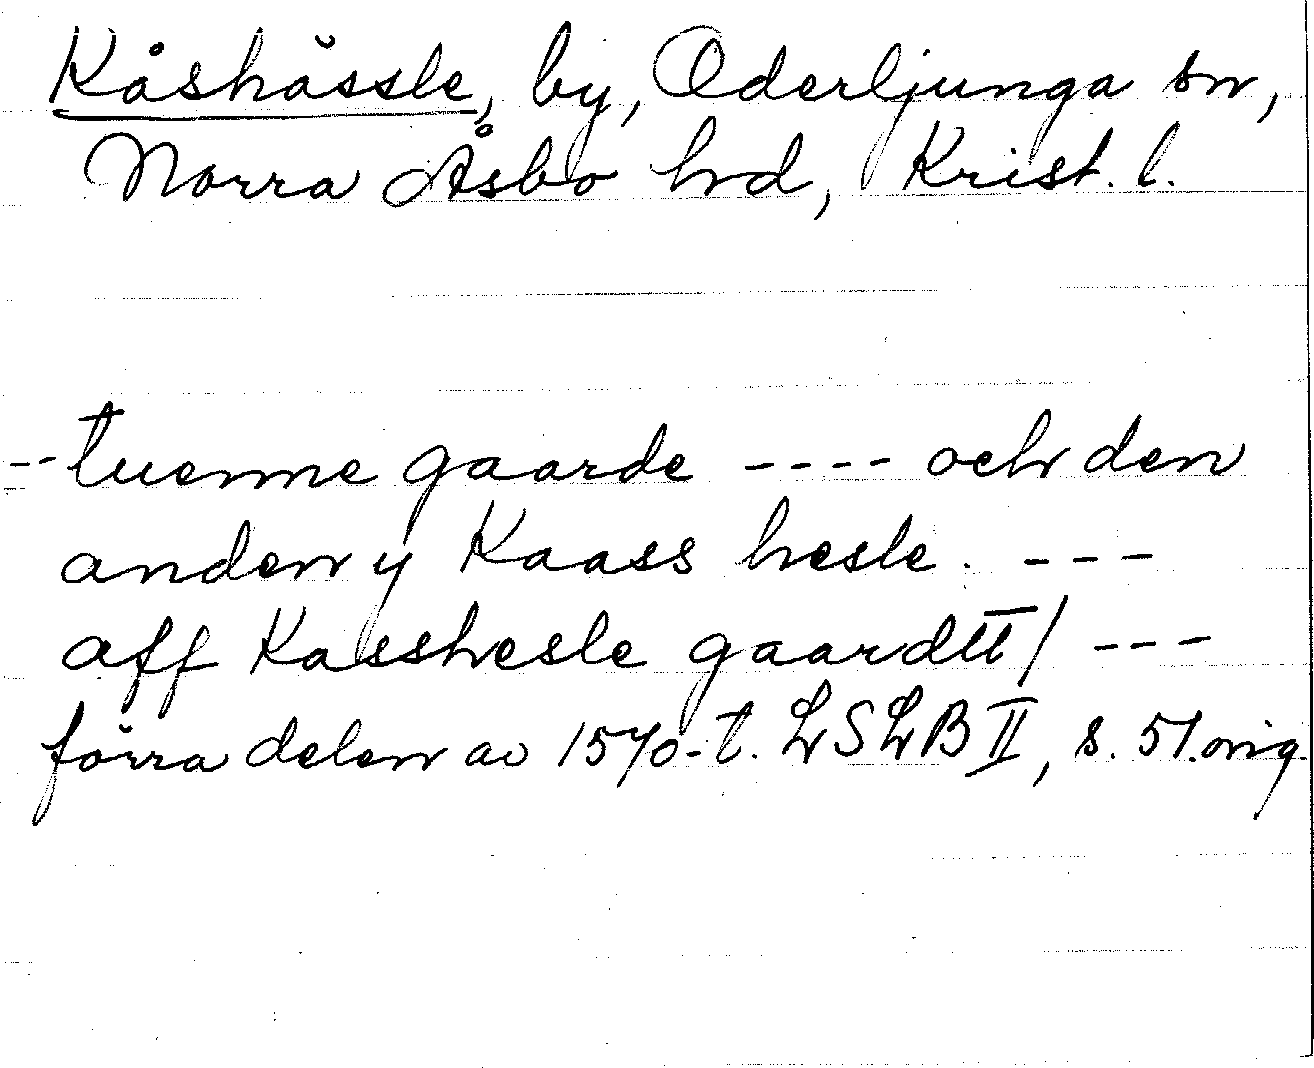 Kåshässle, by, Oderljunga sn,
Norra Åsbo hd, Krist. l.
-- tuenne gaarde ---- och den
anden y Kaass hesle. ---
aff Kasshesle gaardtt / ---
förra delen av 1570-t. LSLB II, s. 51. orig.